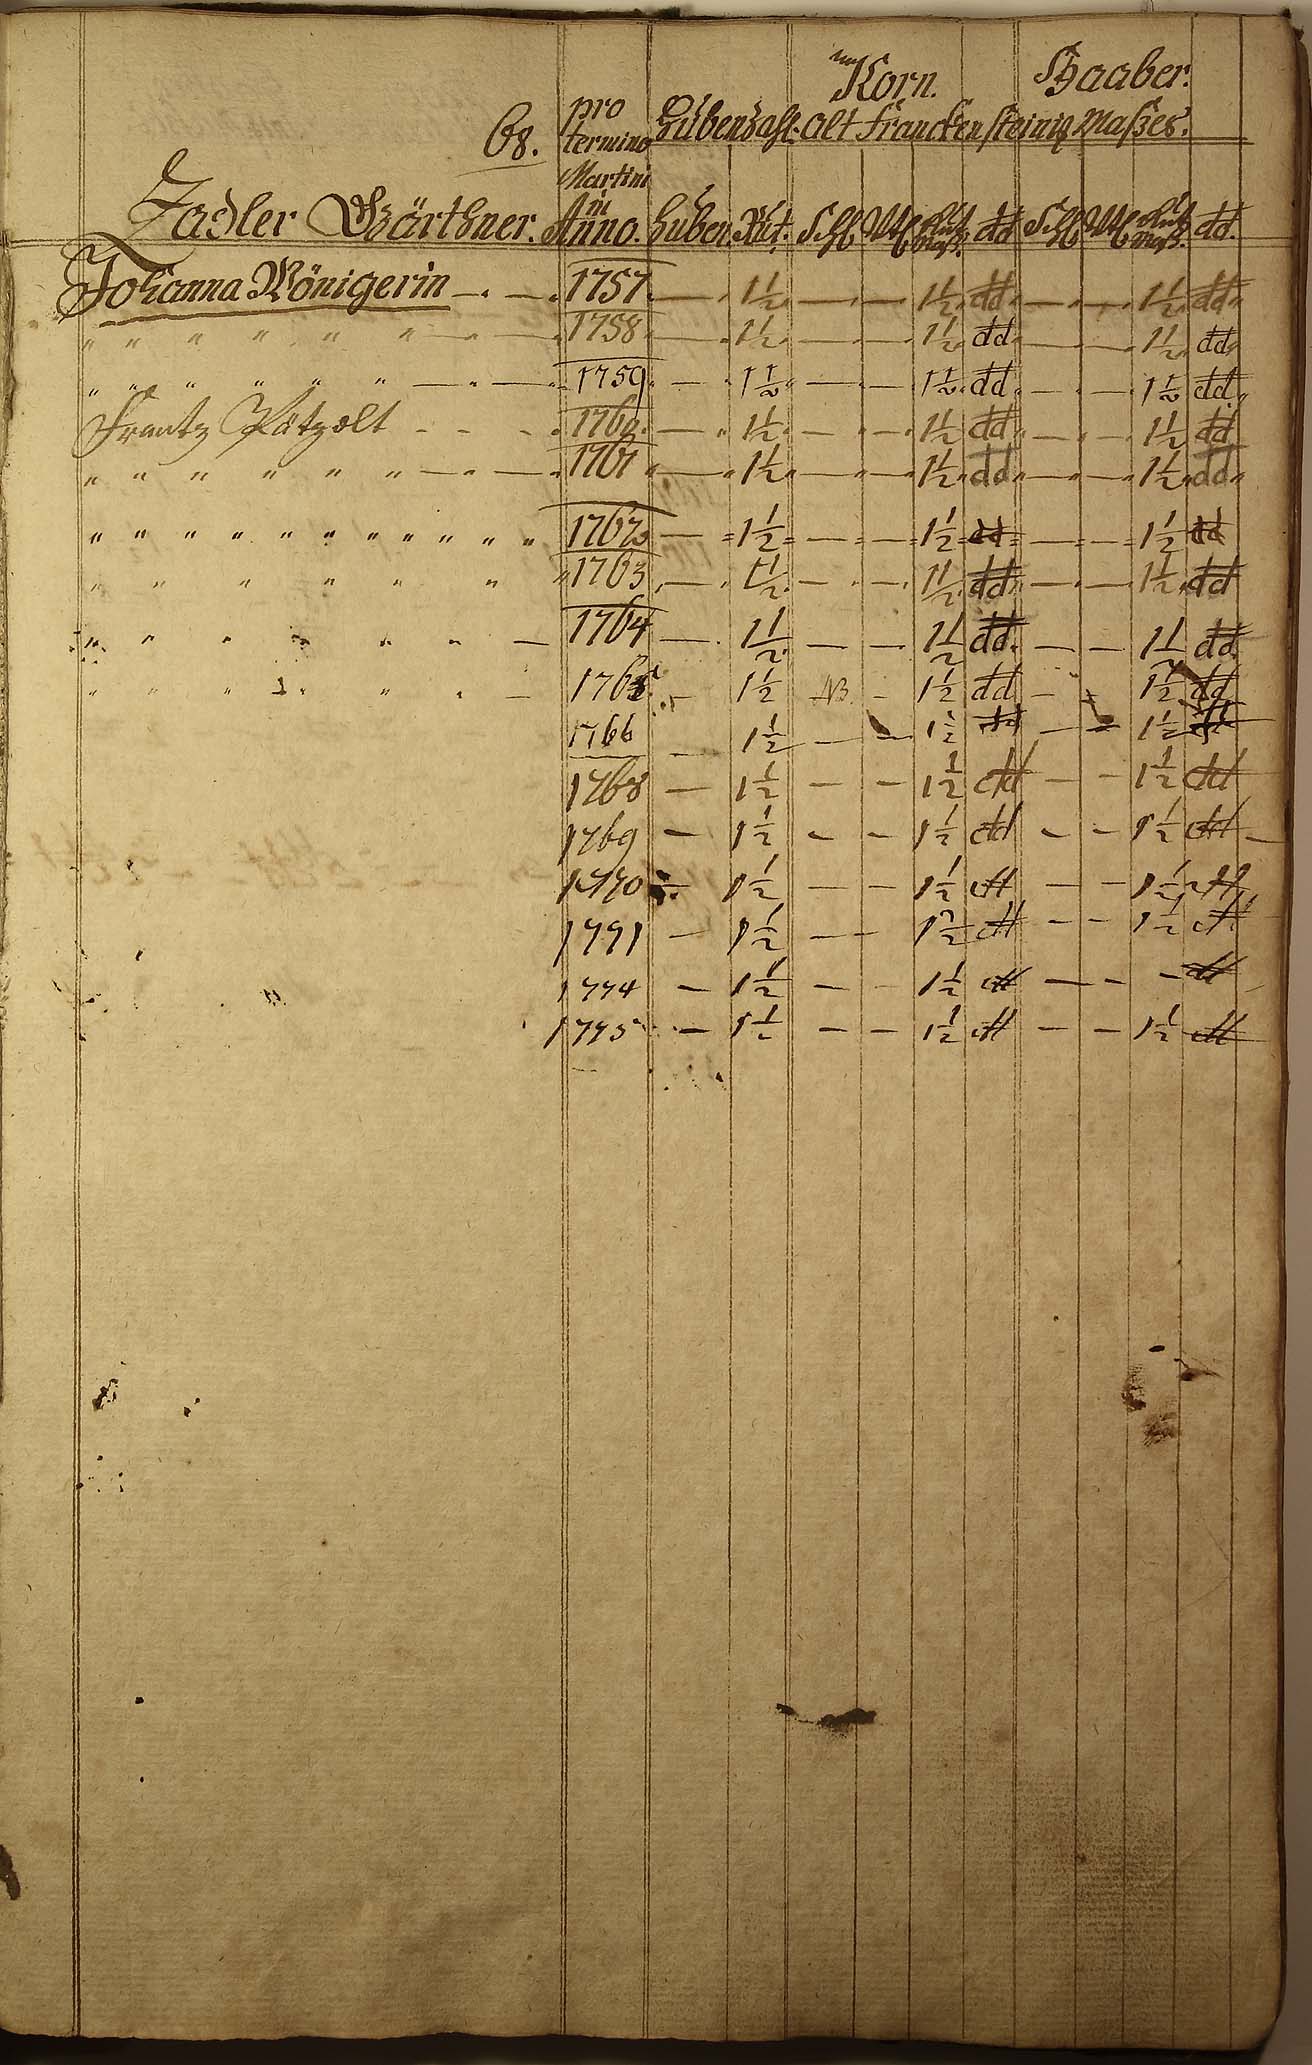 Korn. Haaber.
68. pro Hubenzahl. alt Franckensteinig Maßes.
termino
Martini
in
Zadler Gärthner. Anno. Huben. Rut. Schl Mtz dd Schl Mtz dd.
Johanna Königerin — . — 1757. — 1½ — — 1½ dd — — 1½ dd
" " " " " " — " — 1758 — 1½ — — 1½ dd — — 1½ dd
" " " " " " — " — 1759 — 1½ — — 1½ dd — — 1½ dd
Frantz Pätzolt - - - 1760. — 1½ — — 1½ dd — — 1½ dd
" " " " " " — " — 1761 — 1½ — — 1½ dd — — 1½ dd
" " " " " " " " " " " " 1762 — 1½ — — 1½ dd — — 1½ dd
" " " " " " " 1763 — 1½ — — 1½ dd — — 1½ dd
" " " " " " — 1764 — 1½ — — 1½ dd — — 1½ dd
" " " " " " — 1765 — 1½ NB — 1½ dd — — 1½ dd
1766 — 1½ — — 1½ dd — — 1½ dd
1768 — 1½ — — 1½ dd — — 1½ dd
1769 — 1½ — — 1½ dd — — 1½ dd
1770 — 1½ — — 1½ dd — — 1½ dd
1771 — 1½ — — 1½ dd — — 1½ dd
1774 — 1½ — — 1½ dd — — — dd
1775 — 1½ — — 1½ dd — — 1½ dd